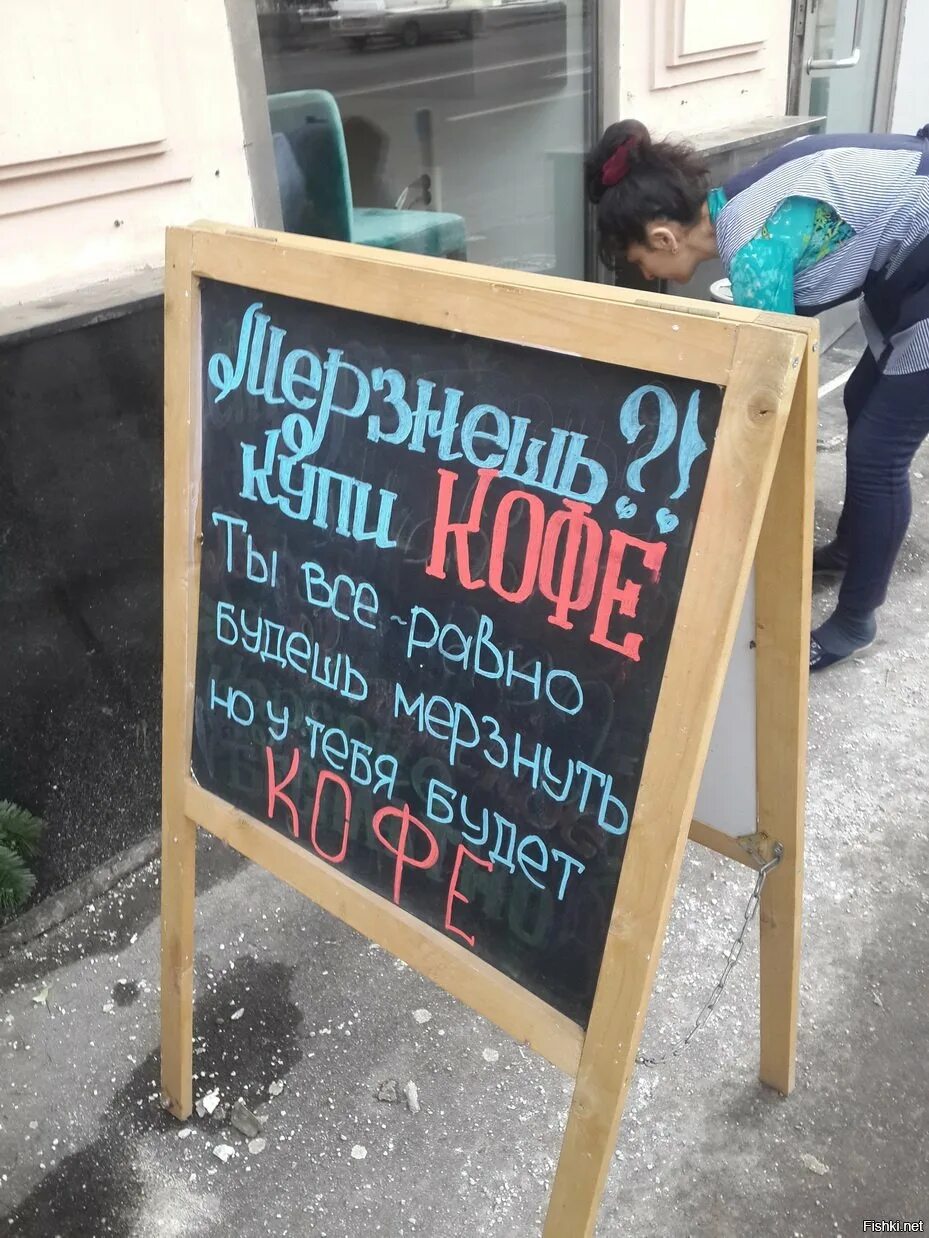 Мерзнешь?!
купи КОФЕ
Ты все-равно
будешь мерзнуть
но у тебя будет
КОФЕ
Fishki.net